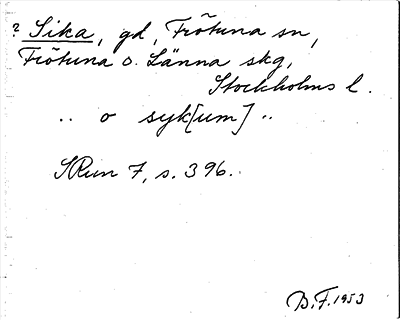 ? Sika, gd, Frötuna sn,
Frötuna o. Länna skg,
Stockholms l.
.. o syk[um] ..
SRun 7, s. 396.
D.F. 1953